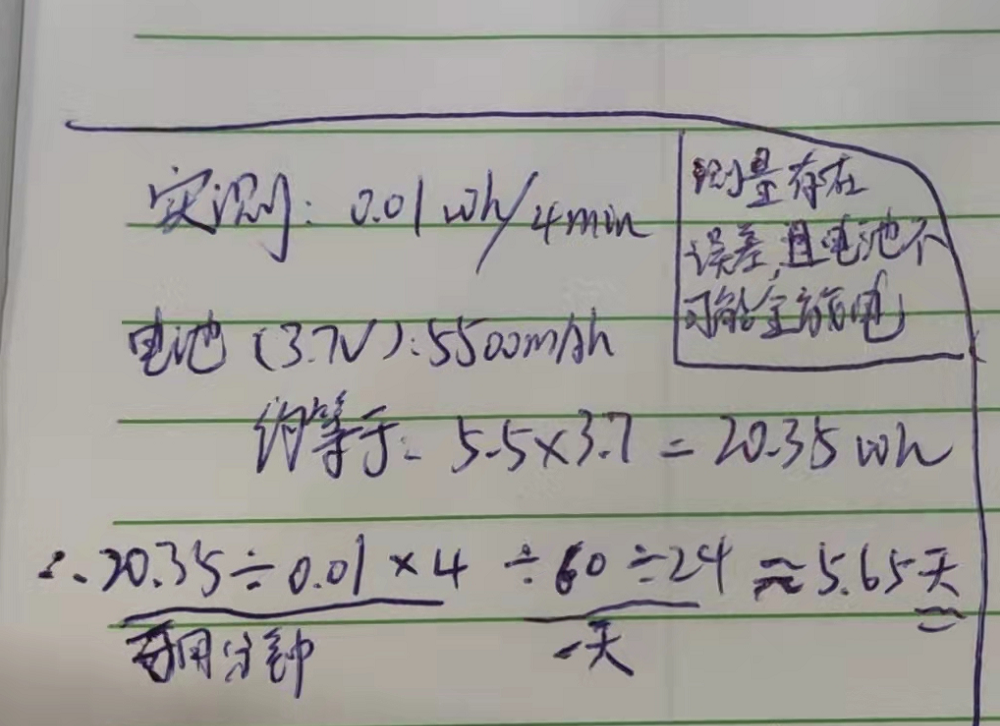 实测: 0.01wh/4min
测量存在
误差,且电池不
可能全部放电
电池(3.7V):5500mAh
约等于: 5.5×3.7=20.35wh
∴20.35÷0.01×4÷60÷24≈5.65天
可用分钟 一天